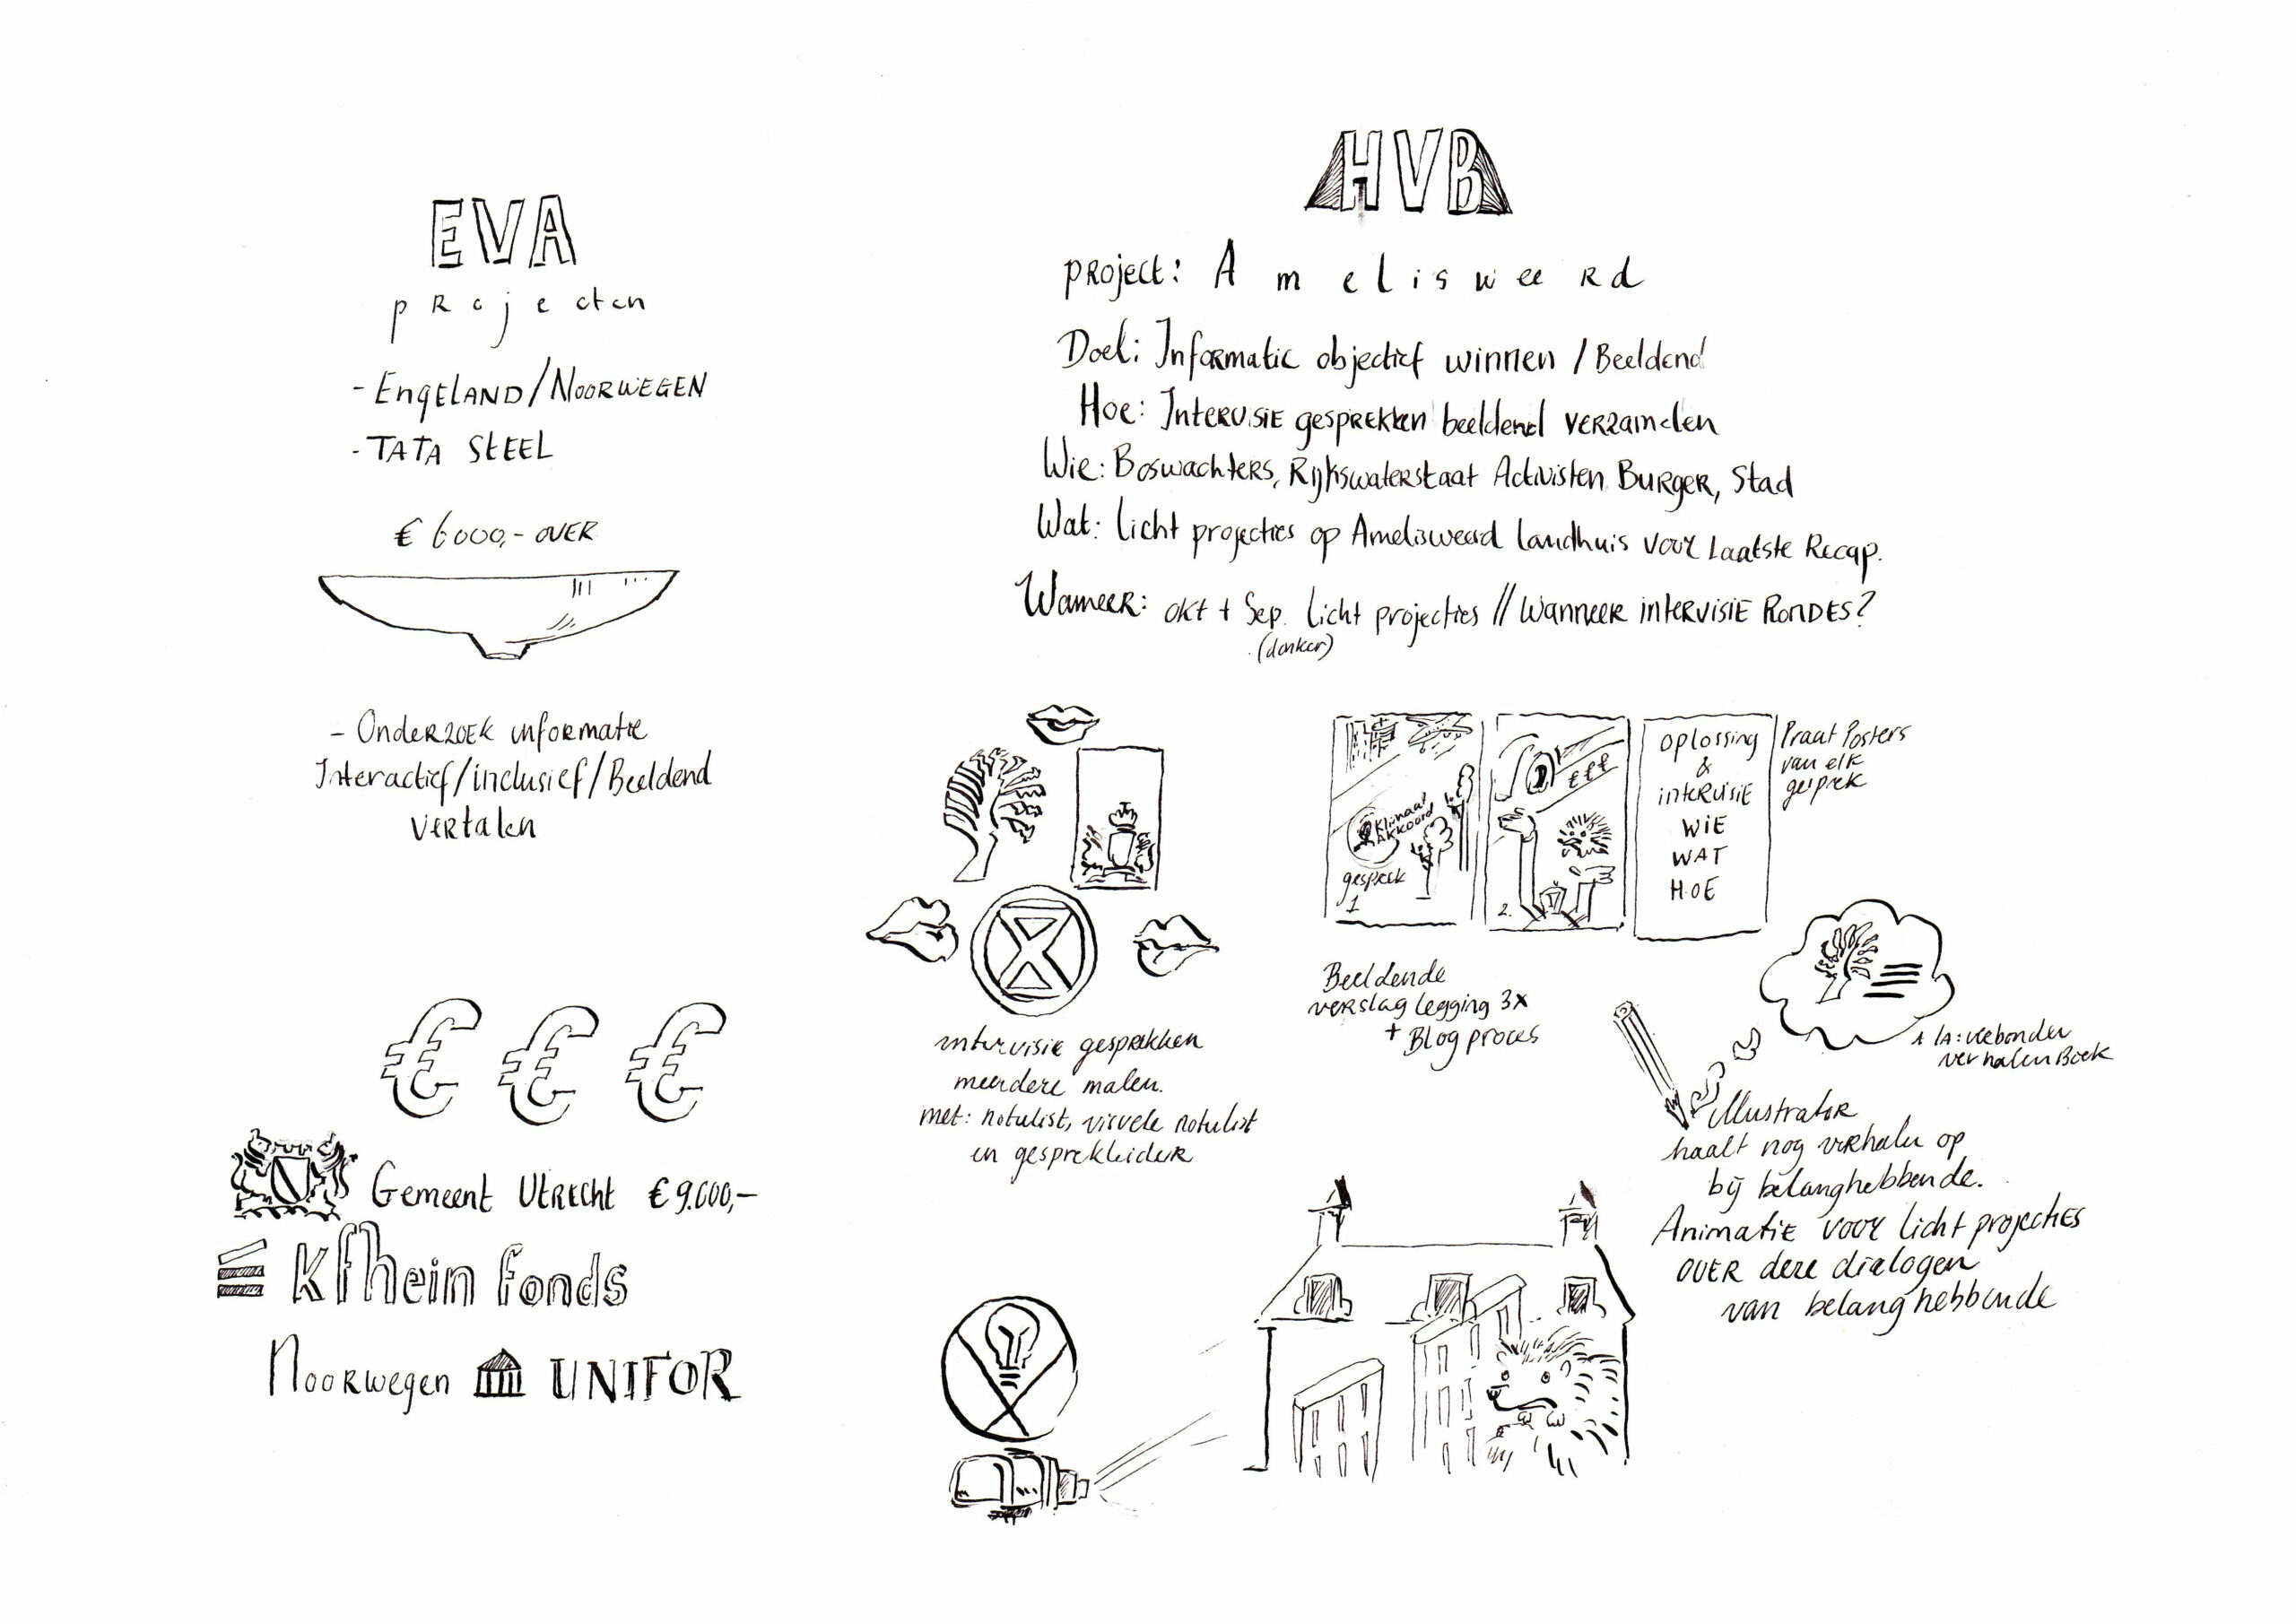 EVA
projecten
- ENgELAND/NOORWEGEN
- TATA STEEL
€ 6000,- OVER
- ONDERZOEK informatie
Interactief/inclusief/Beeldend
VERtalen
€ € €
Gemeent UtRECht € 9.000,-
kfhein fonds
Noorwegen UNIFOR
HVB
PROject: Amelisweerd
Doel: Informatie objectief winnen / Beeldend
Hoe: INtERVISiE gespREKken beeldend VERZamelen
Wie: Boswachters, Rijkswaterstaat Activisten Burger, Stad
Wat: licht projecties op Amelisweerd landhuis voor Laatste Recap.
Wanneer: okt + Sep. licht projecties // Wanneer intervisie Rondes?
(donker)
intervisie gesprekken
meerdere malen.
met: notulist, visuele notulist
en gesprekleider
Klimaat
Akkoord
gesprek
1
€€€
2.
oplossing
&
intervisie
WiE
WAT
HOE
Praat Posters
van elk
gesprek
Beeldende
verslag legging 3x
+ Blog proces
verhalen Boek
illustrator
haalt nog verhalen op
bij belanghebbende.
Animatie voor licht projecties
OVER deze dialogen
van belanghebbende